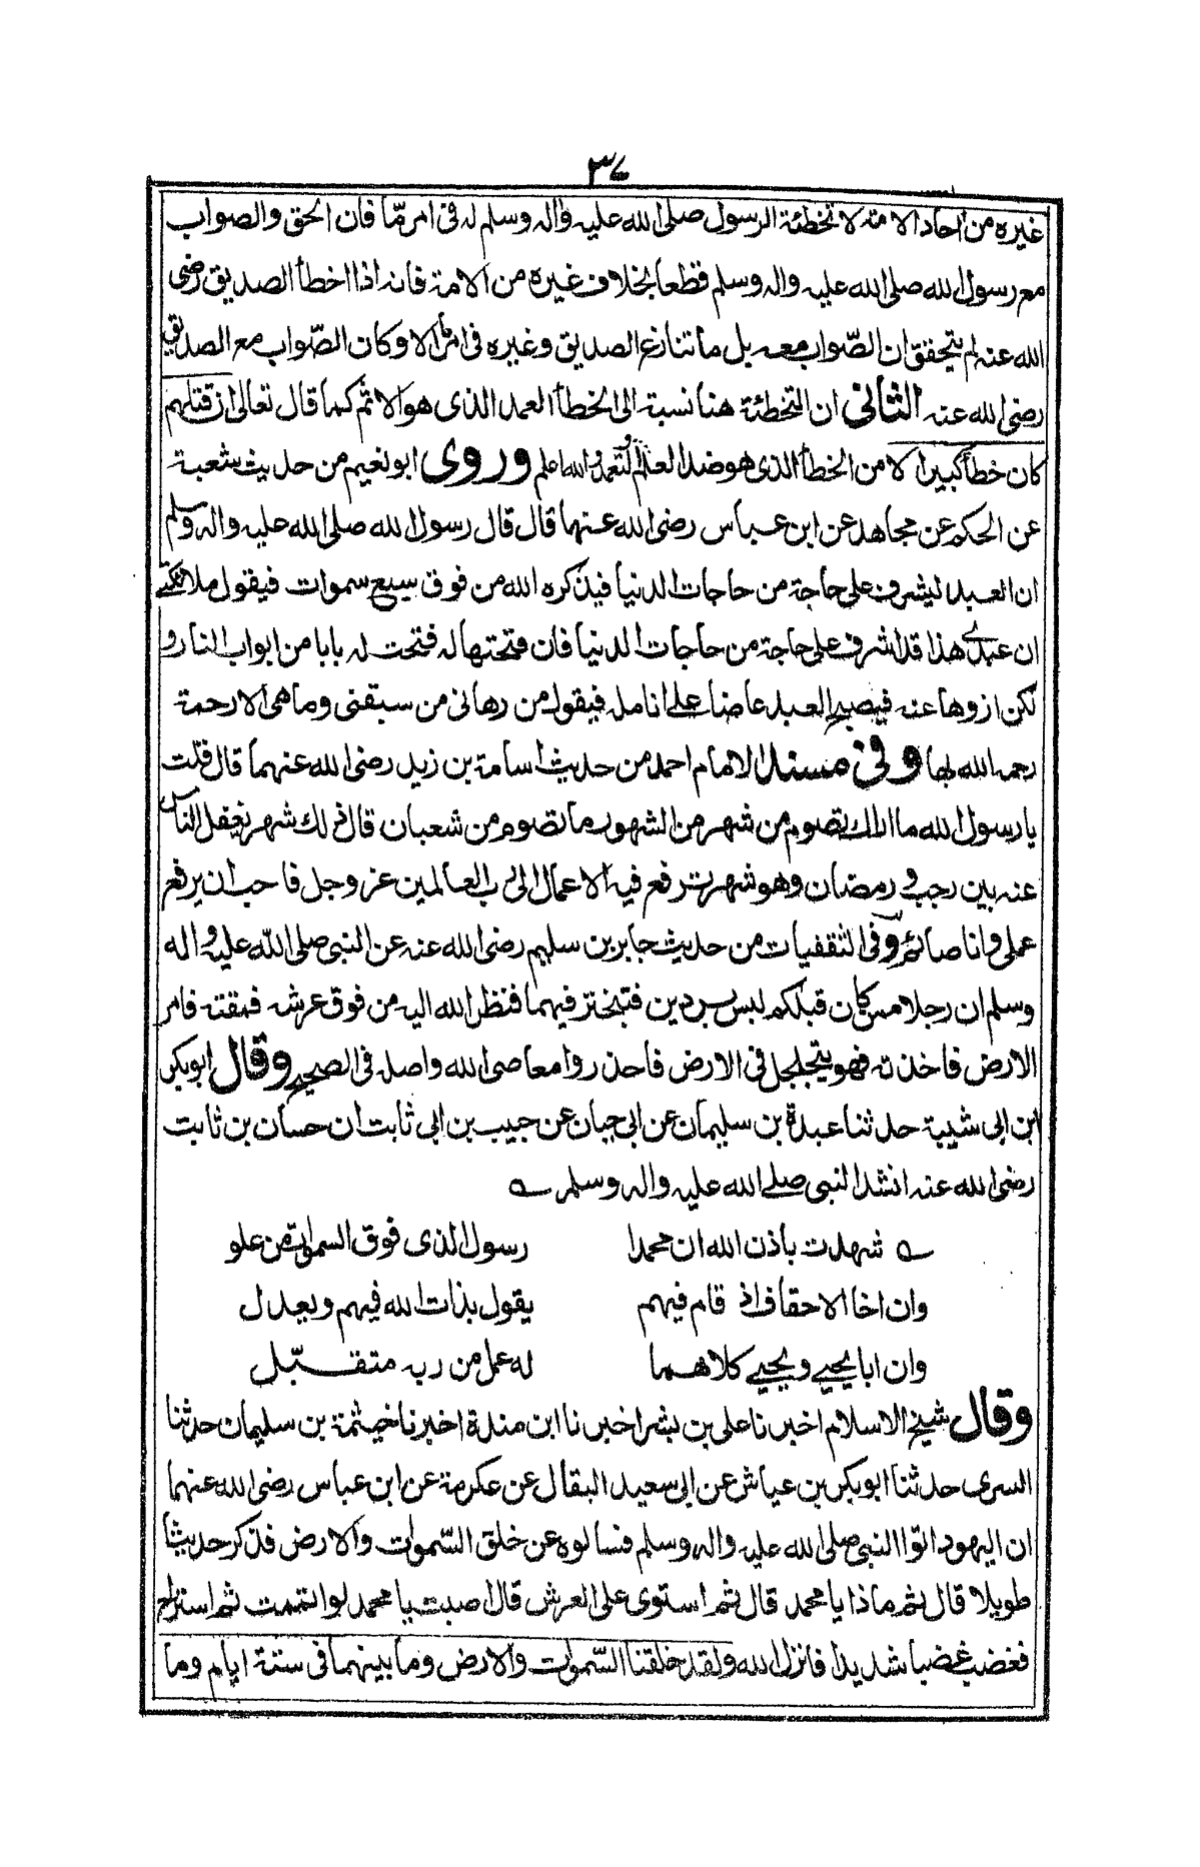 ٣٧
غيره من آحاد الامة لا تخطئة الرسول صلى الله عليه واله وسلم له فى امر مّا فان الحق والصواب
مع رسول الله صلى الله عليه واله وسلم قطعا بخلاف غيره من الامة فانه اذا اخطأ الصديق رضى
الله عنه لم يتحقق ان الصّواب معه بل ما تنازع الصديق وغيره فى امر الا وكان الصّواب مع الصديق
رضى الله عنه الثانى ان التخطئة هنا نسبة الى الخطأ العمد الذى هو الاثم كما قال تعالى ان قتلهم
كان خطأ كبيرا لا من الخطأ الذى هو ضد العلم والتعمد والله اعلم وروى ابو نعيم من حديث شعبة
عن الحكم عن مجاهد عن ابن عباس رضى الله عنهما قال قال رسول الله صلى الله عليه واله وسلم
ان العبد ليشرف على حاجة من حاجات الدنيا فيذكره الله من فوق سبع سموات فيقول ملائكتى
ان عبدى هذا قد اشرف على حاجة من حاجات الدنيا فان فتحتها له فتحت له بابا من ابواب النار و
لكن ازوها عنه فيصبح العبد عاضا على انامله فيقول من رهانى من سبقنى وما هى الا رحمة
رحمه الله بها وفى مسند الامام احمد من حديث اسامة بن زيد رضى الله عنهما قال قلت
يا رسول الله ما اراك تصوم من شهر من الشهور ما تصوم من شعبان قال ذلك شهر يغفل الناس
عنه بين رجب و رمضان وهو شهر ترفع فيه الاعمال الى رب العالمين عز وجل فاحب ان يرفع
عملى وانا صائم وفى الثقفيات من حديث جابر بن سليم رضى الله عنه عن النبى صلى الله عليه واله
وسلم ان رجلا ممن كان قبلكم لبس بردين فتبختر فيهما فنظر الله اليه من فوق عرشه فمقته فامر
الارض فاخذته فهو يتجلجل فى الارض فاحذروا معاصى الله واصله فى الصحيح وقال ابو بكر
ابن ابى شيبة حدثنا عبدة بن سليمان عن ابى حبان عن حبيب بن ابى ثابت ان حسان بن ثابت
رضى الله عنه انشد النبى صلى الله عليه واله وسلم
شهدت باذن الله ان محمدا رسول الذى فوق السموات من علو
وان اخا الاحقاف اذ قام فيهم يقول بذات الله فيهم ويعدل
وان ابا يحيى ويحيى كلاهما له عمل من ربه متقبّل
وقال شيخ الاسلام اخبرنا على بن بشر اخبرنا ابن مندة اخبرنا خيثمة بن سليمان حدثنا
السرى حدثنا ابو بكر بن عياش عن ابى سعيد البقال عن عكرمة عن ابن عباس رضى الله عنهما
ان اليهود اتوا النبى صلى الله عليه واله وسلم فسالوه عن خلق السّموات والارض فذكر حديثا
طويلا قال ثم ماذا يا محمد قال ثم استوى على العرش قال اصبت يا محمد لو اتممت ثم استراح
فغضب غضبا شديدا فانزل الله ولقد خلقنا السّموات والارض وما بينهما فى ستة ايام وما